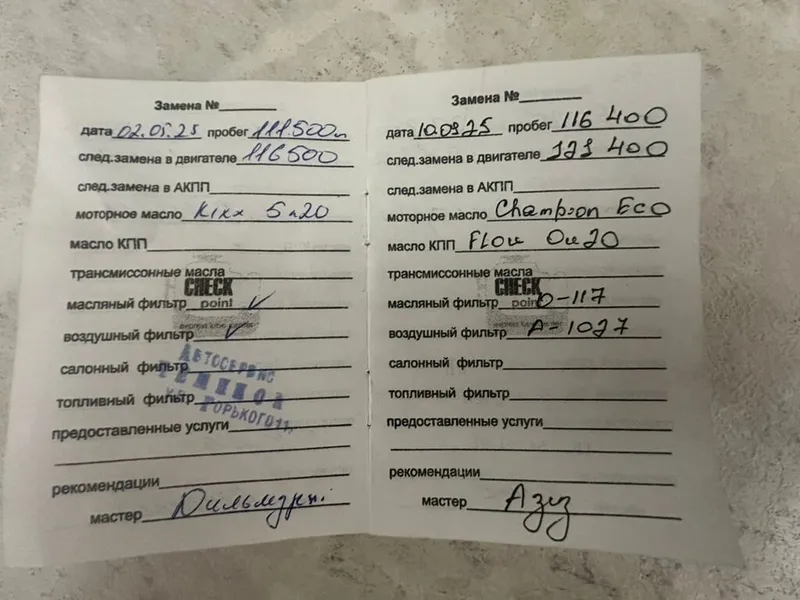 Замена №
дата 02.05.25 пробег 111.500
след.замена в двигателе 116500
след.замена в АКПП
моторное масло Kixx 5w20
масло КПП
трансмиссонные масла
CHECK
масляный фильтр point ✓
воздушный фильтр ✓
АВТОСЕРВИС
салонный фильтр
топливный фильтр
ГОРЬКОГО
предоставленные услуги
рекомендации
мастер
Замена №
дата 10.09.25 пробег 116 400
след.замена в двигателе 121 400
след.замена в АКПП
моторное масло Champion Eco
масло КПП Flow 0w20
трансмиссонные масла
CHECK
масляный фильтр point O-117
воздушный фильтр A-1027
салонный фильтр
топливный фильтр
предоставленные услуги
рекомендации
мастер Азиз